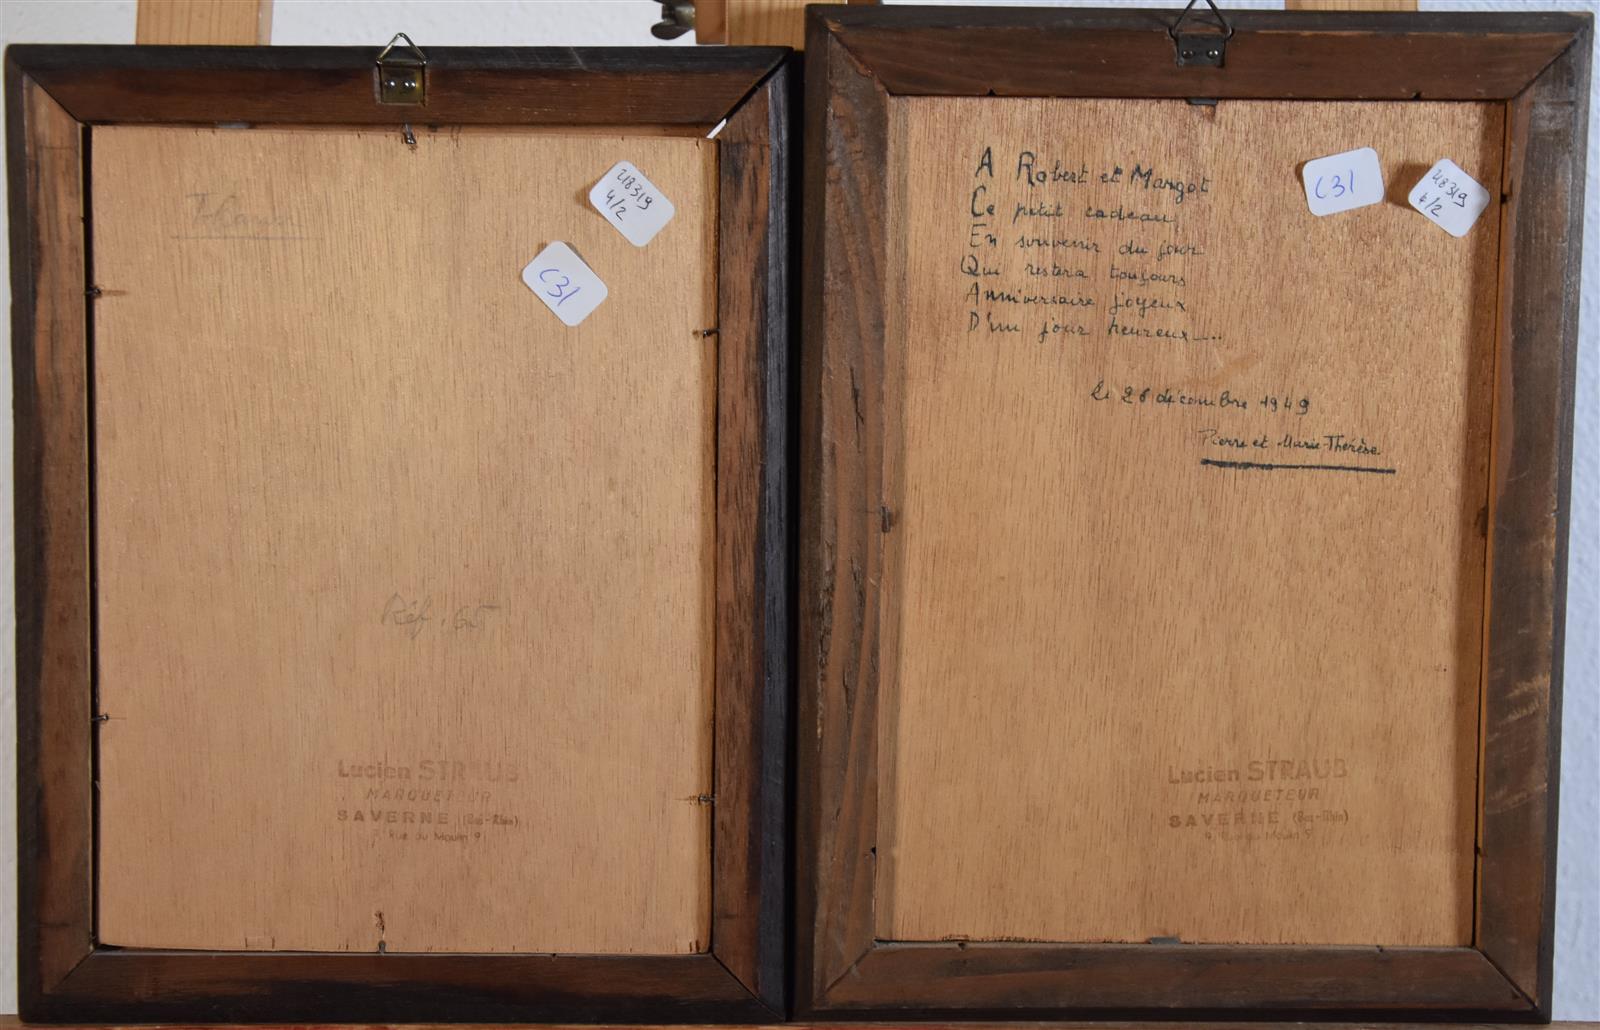 48319
4/2
C31
Réf. 65
Lucien STRAUB
MARQUETEUR
SAVERNE (Bas-Rhin)
9, Rue du Moulin 9
A Robert et Margot
Ce petit cadeau
En souvenir du jour
Qui restera toujours
Anniversaire joyeux
D'un jour heureux....
le 26 décembre 1949
Pierre et Marie-Thérèse
C31
48319
4/2
Lucien STRAUB
MARQUETEUR
SAVERNE (Bas-Rhin)
9, Rue du Moulin 9